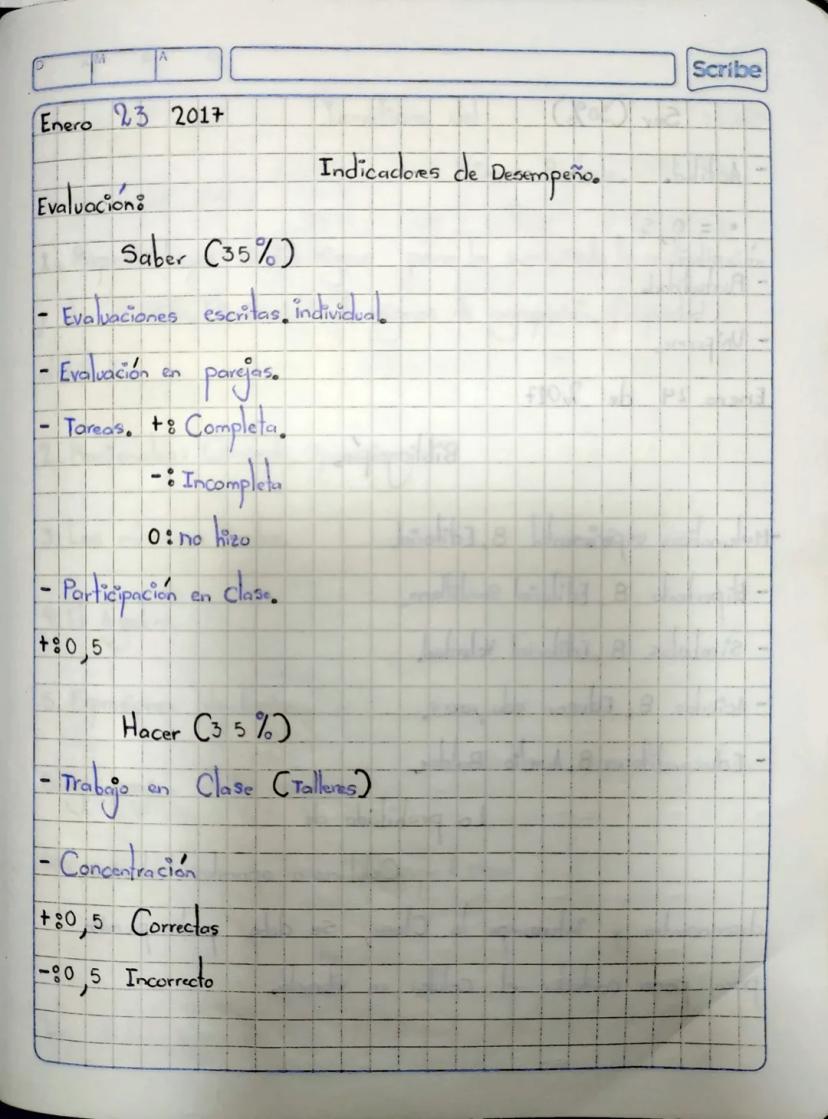 D M A
Scribe
Enero 23 2017
Indicadores de Desempeño.
Evaluación:
Saber (35%)
- Evaluaciones escritas. individual.
- Evaluación en parejas.
- Tareas. +: Completa.
-: Incompleta
0: no hizo
- Participación en clase.
+: 0,5
Hacer (35%)
- Trabajo en Clase (Talleres)
- Concentración
+: 0,5 Correctas
-: 0,5 Incorrecto